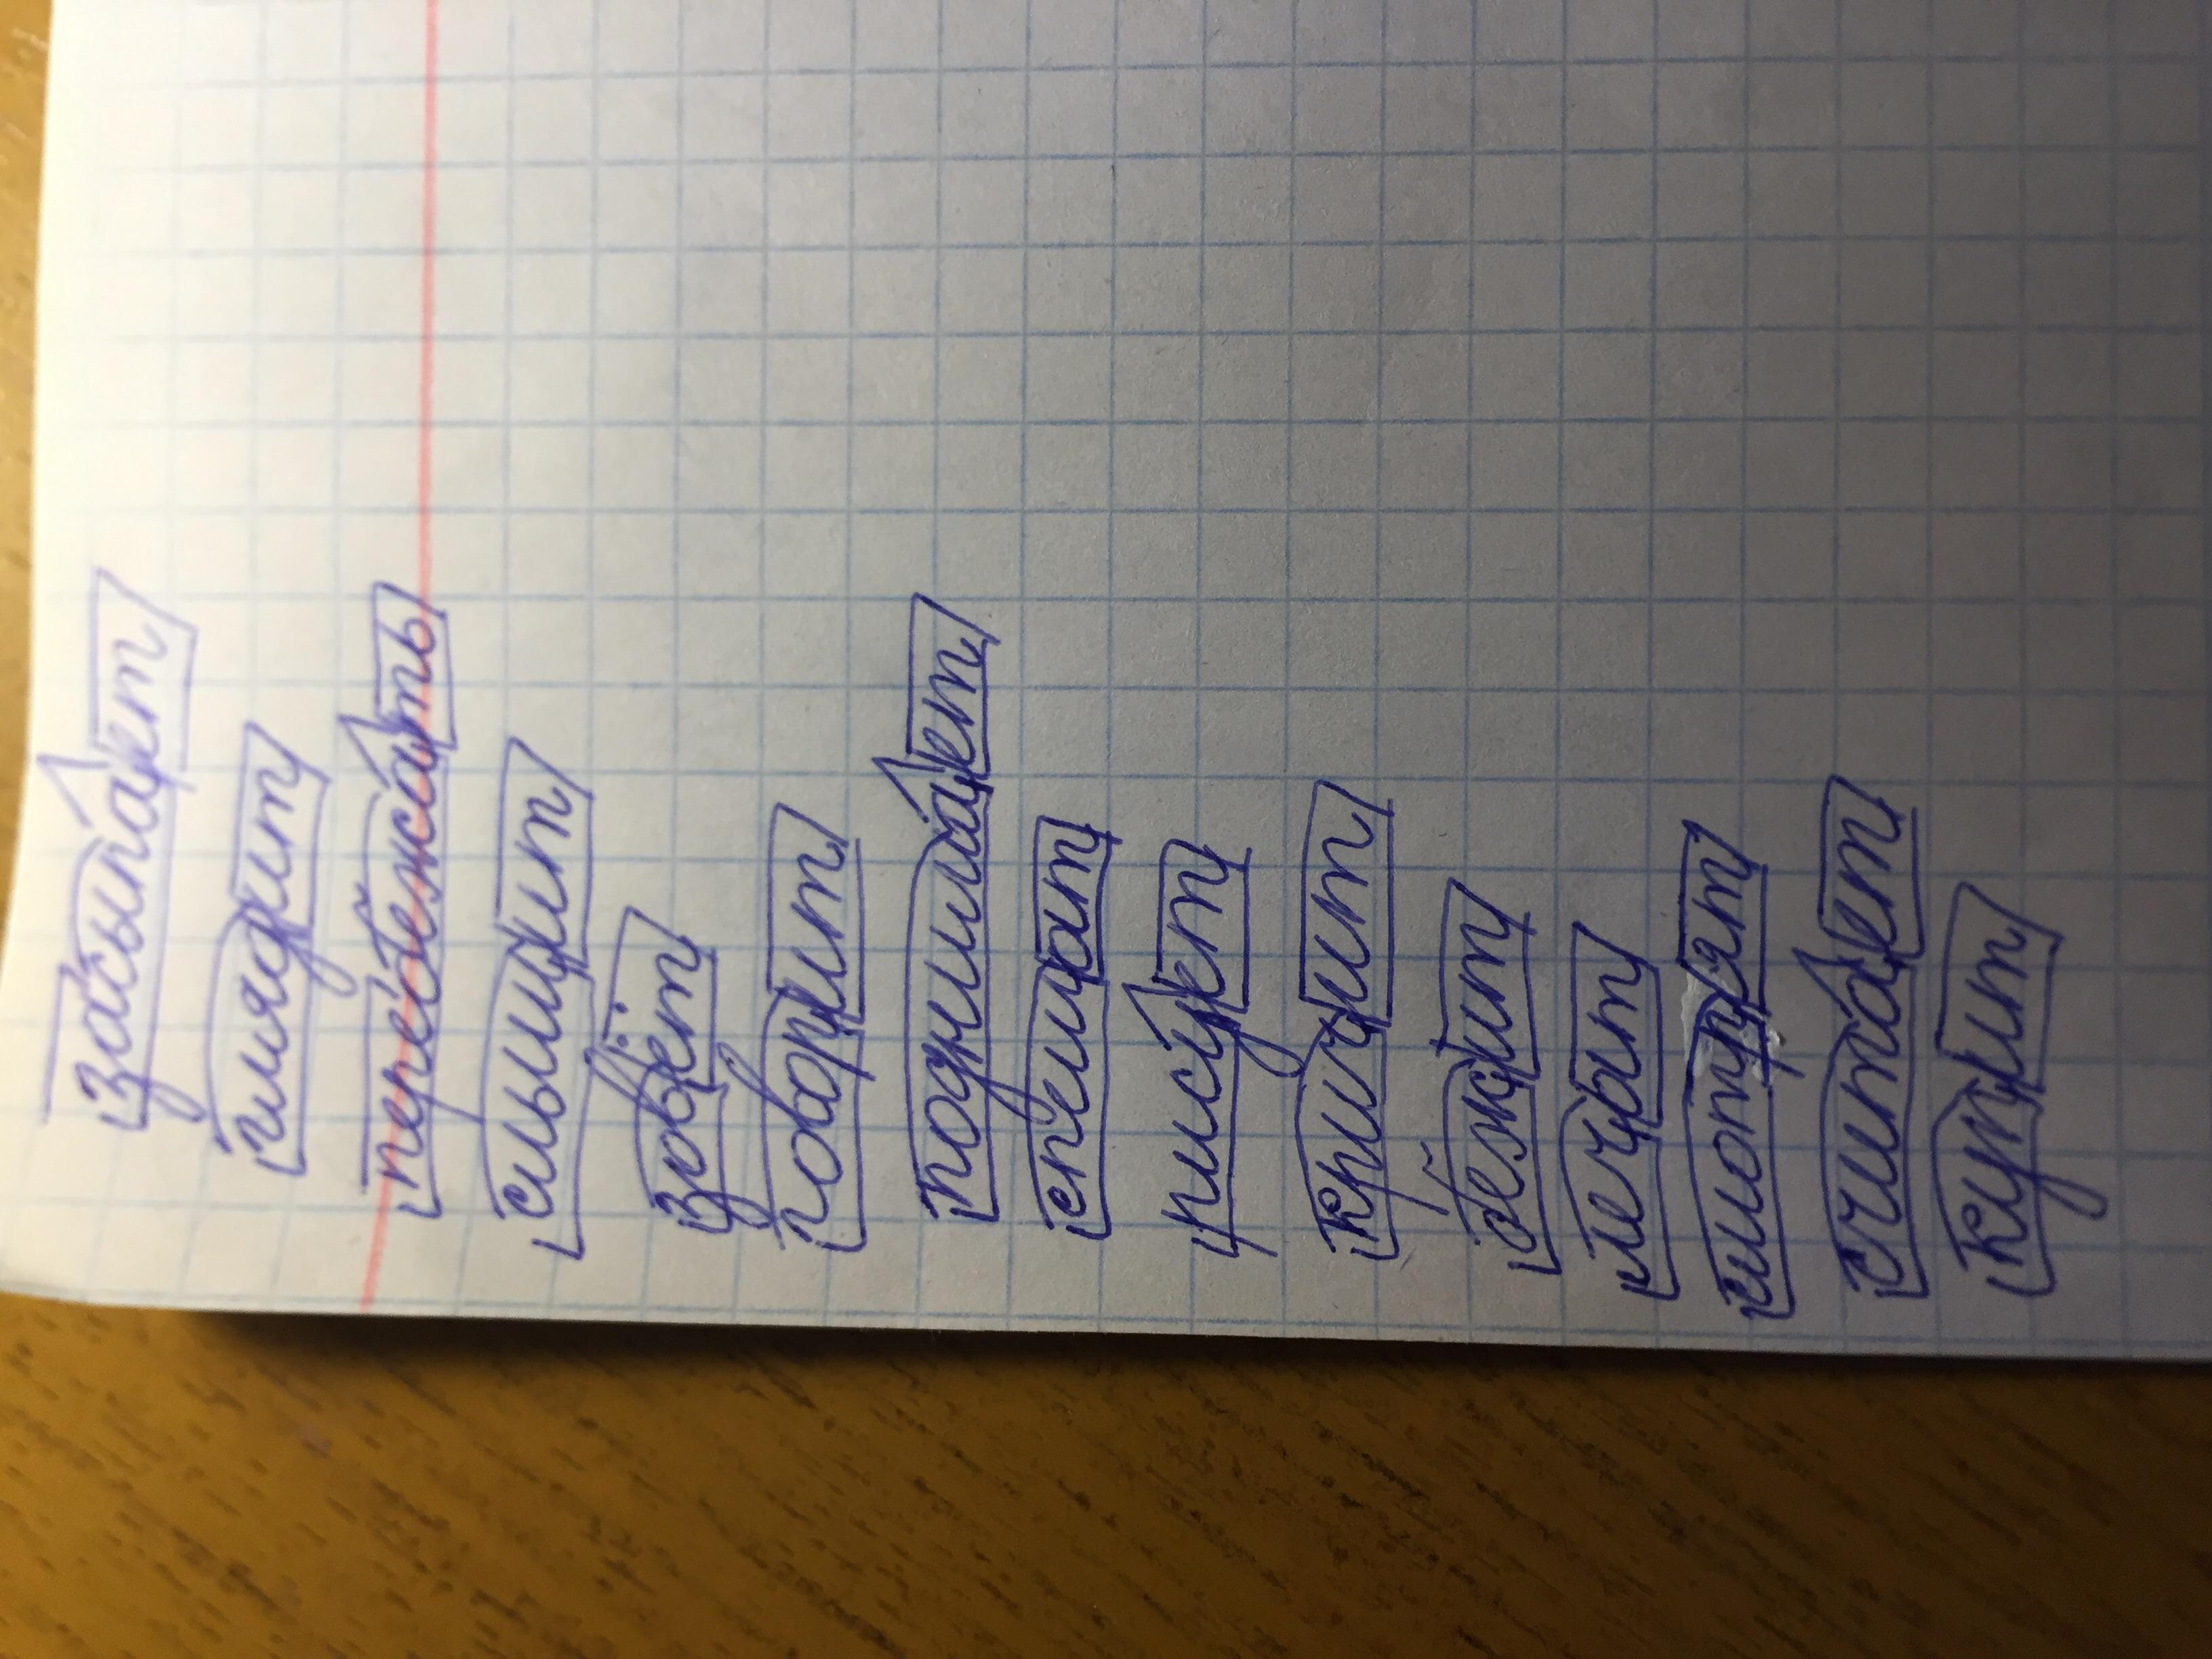 засыпает
глядит
перебежать
слышит
зовёт
говорит
поднимает
спешат
рисует
кричит
бежит
лечат
смотрят
считает
купит